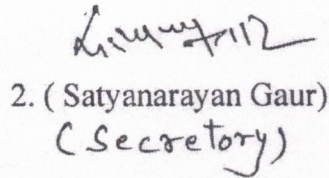 2. ( Satyanarayan Gaur)
(Secretory)